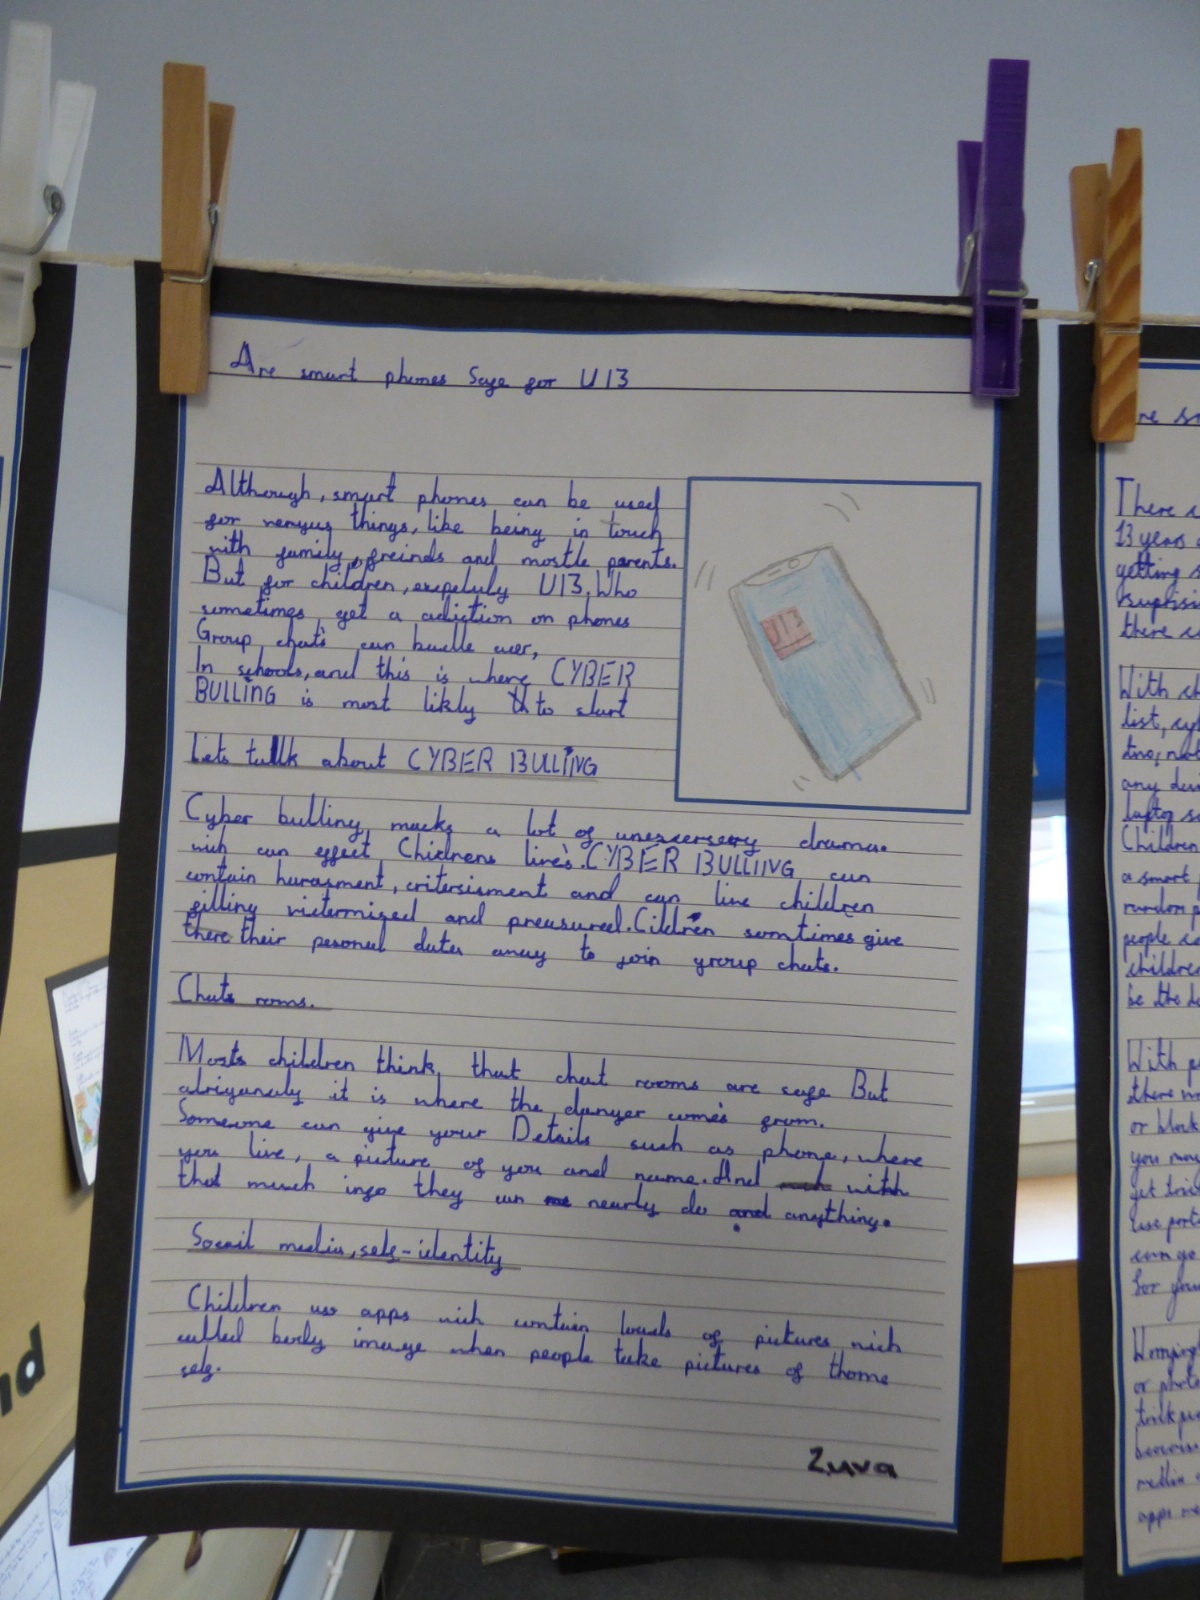 Are smart phones Safe for U13
Although, smart phones can be used
for veryus things, like being in touch
with family, freinds and mostle parents.
But for children, exepeluly U13, Who
sometimes get a adiction on phones
Group chats can
In schools, and this is where CYBER
BULLING is most likely to start
U13
Lets talk about CYBER BULLING
Cyber bulling macks a lot of drama.
wich can effect Chidrens live's. CYBER BULLIING can
contain harasment, critersisment and can live children
gilling victermized and preausured. Cildren somtimes give
there their pesonal datas away to join group chats.
Chats rooms.
Mosts children think that chat rooms are safe But
it is where the danger come's from.
Someone can give your Details such as phone, where
you live, a picture of you and name. And with
that much info they can nearly do and anything.
Socail media, self-identity
Children use apps wich contain loads of pictures wich
called image when people take pictures of thome
self.
Zuva
There
13 years
getting
there
With
list,
any
laptop
Children
a smart
random
people
children
be the
With
there
or block
you may
get
can go
for your
or
apps
nd